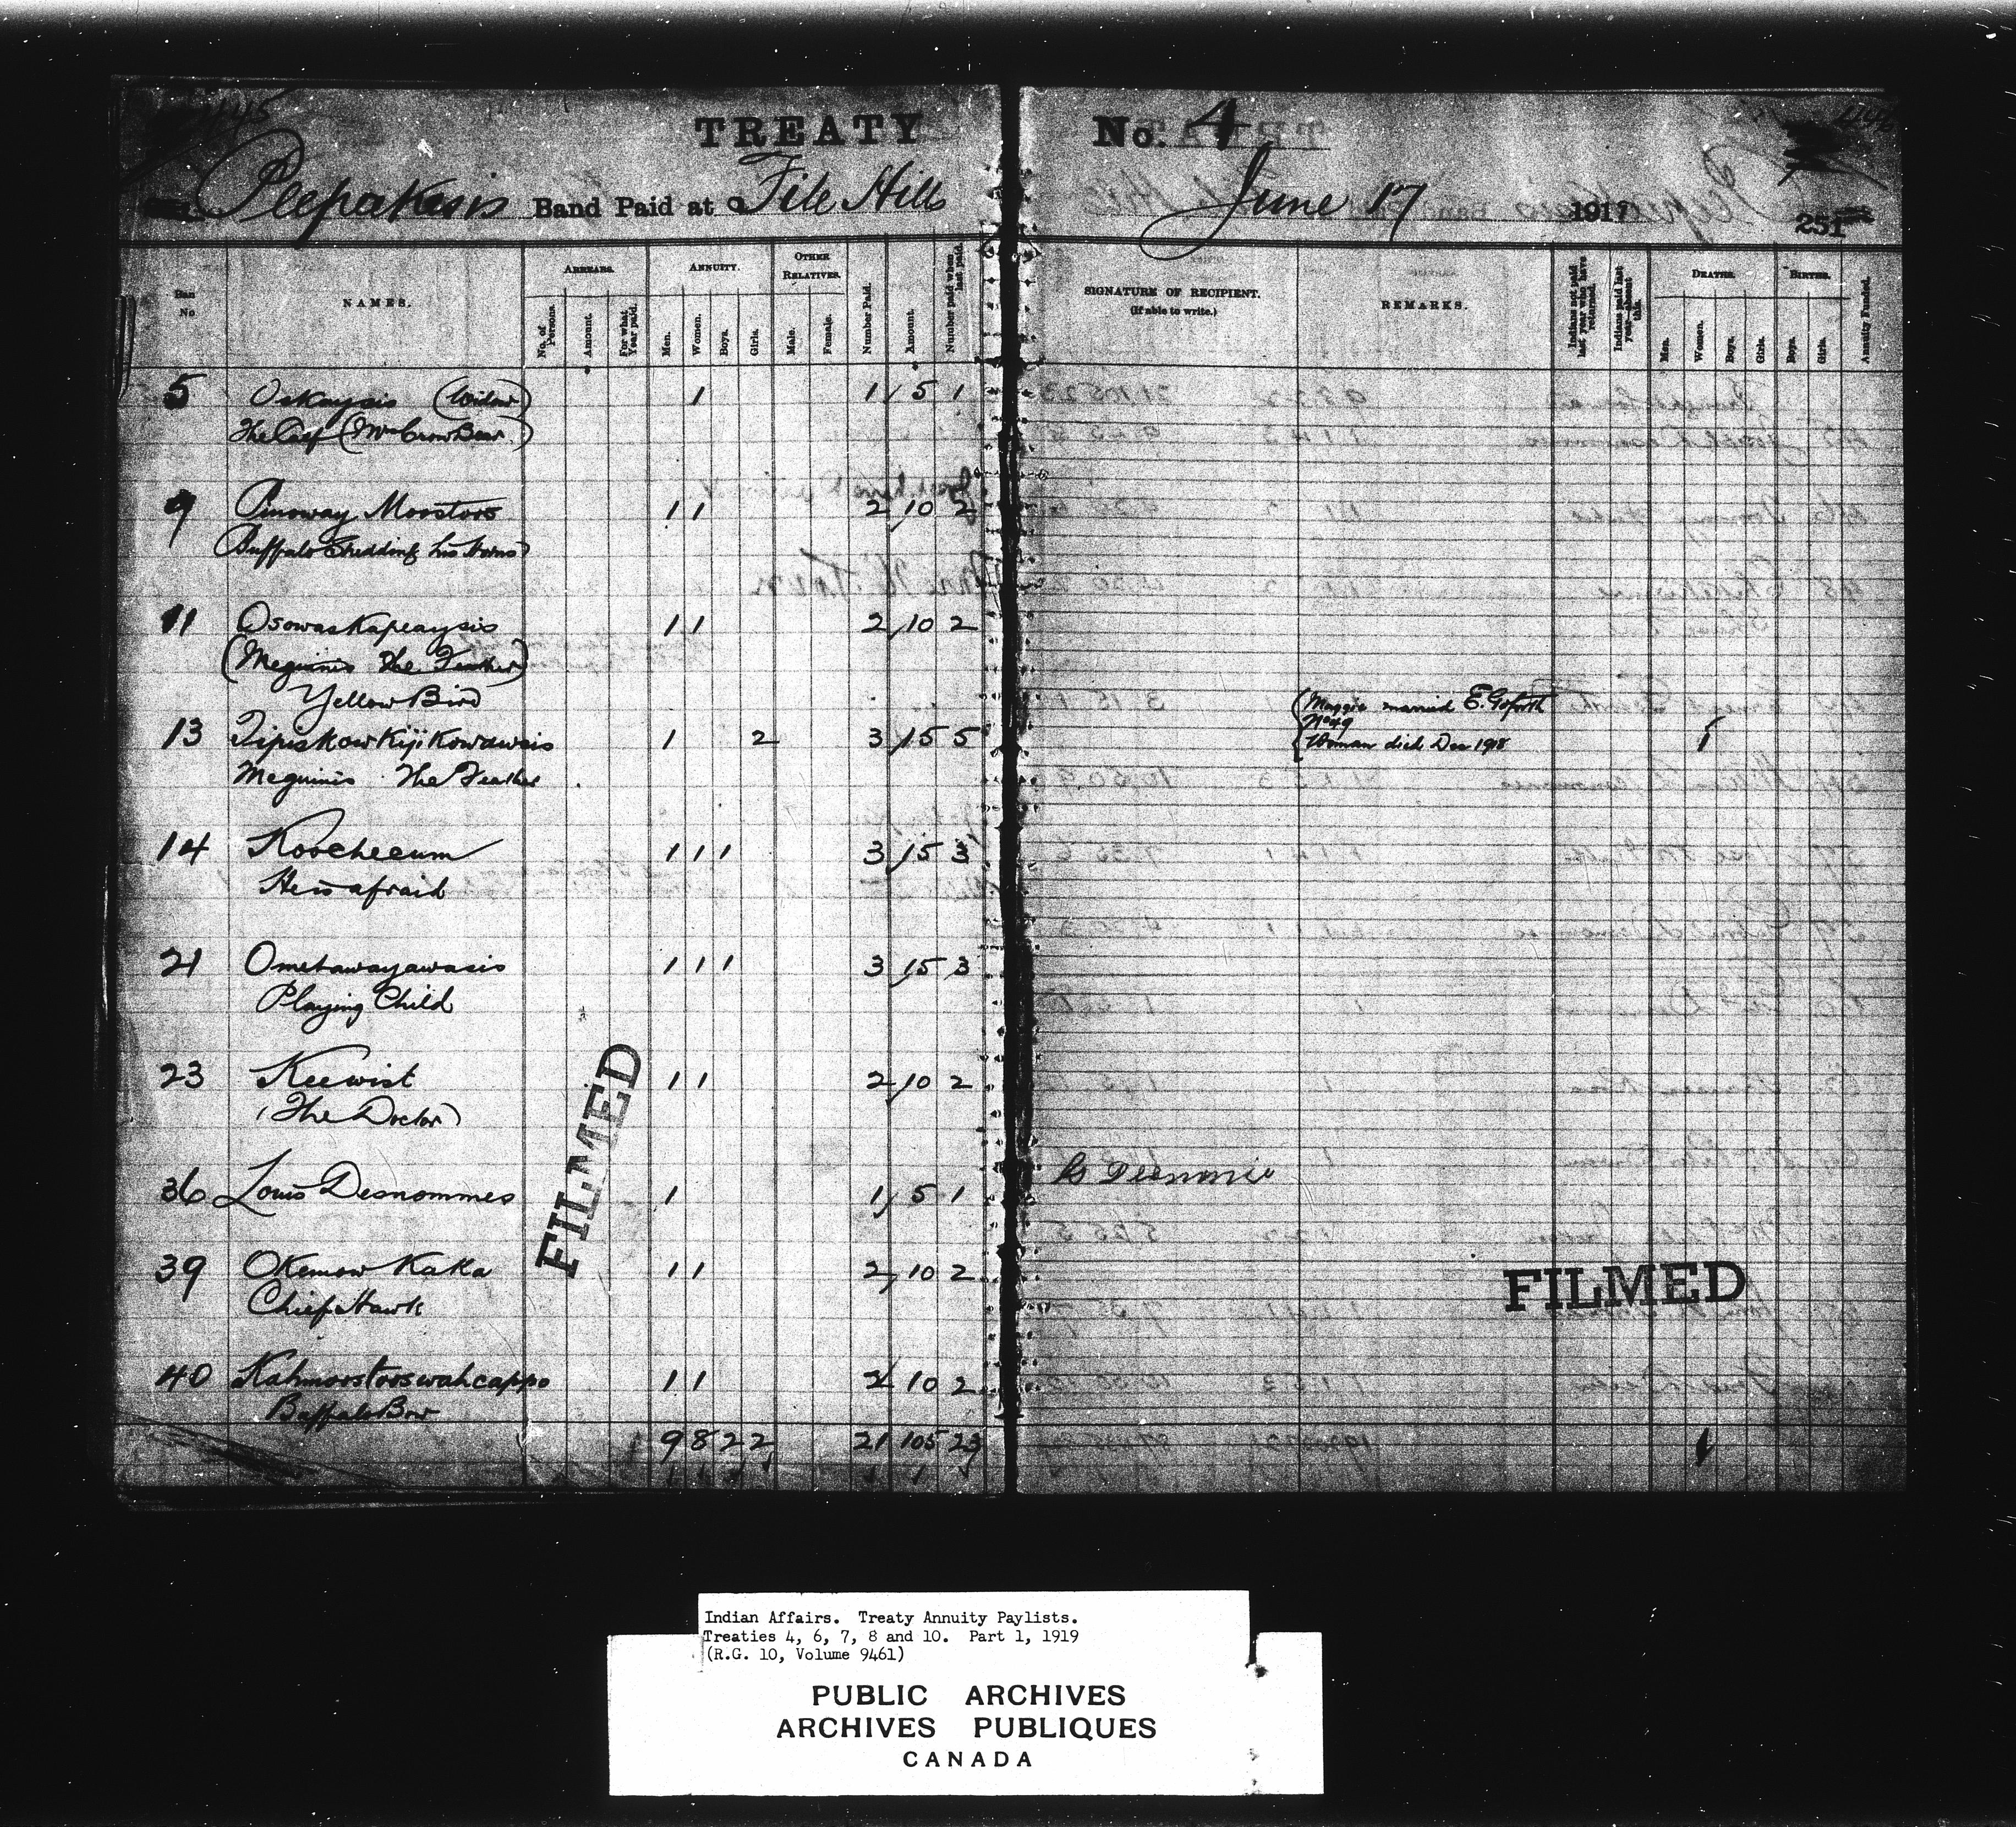 445
TREATY No. 4
Peepakesis Band Paid at File Hills June 17 1917 251
Ban No
NAMES.
ARREARS.
No. of Persons.
Amount.
For what Year paid.
ANNUITY.
Men.
Women.
Boys.
Girls.
OTHER RELATIVES.
Male.
Female.
Number Paid.
Amount.
Number paid when last paid.
SIGNATURE OF RECIPIENT.
(If able to write.)
REMARKS.
Indians not paid last year who have returned.
Indians paid last year—absent this.
DEATHS.
Men.
Women.
Boys.
Girls.
BIRTHS.
Boys.
Girls.
Annuity Funded.
5 Oskaysis (Widow) 1 1 5 1
The Calf (Mrs Crow Bear)
9 Pinoway Moostoos 1 1 2 10 2
Buffalo Shedding his Horns
11 Osowaskapeaysis 1 1 2 10 2
(Meguinis The Feather)
Yellow Bird
13 Tipiskowkijikowawsis 1 2 3 15 5
Meguinis The Feather
(Maggie married E. Goforth
No 49
Woman died Dec 1918 1
14 Koocheeum 1 1 1 3 15 3
He is afraid
21 Ometawayawasis 1 1 1 3 15 3
Playing Child
23 Keewist 1 1 2 10 2
(The Doctor)
36 Louis Desnommes 1 1 5 1
39 Okemow Kaka 1 1 2 10 2
Chief Hawk
40 Kahmoostooswahcappo 1 1 2 10 2
Buffalo Bow
9 8 2 2 21 105 23 1
FILMED
FILMED
Indian Affairs. Treaty Annuity Paylists.
Treaties 4, 6, 7, 8 and 10. Part 1, 1919
(R.G. 10, Volume 9461)
PUBLIC ARCHIVES
ARCHIVES PUBLIQUES
CANADA